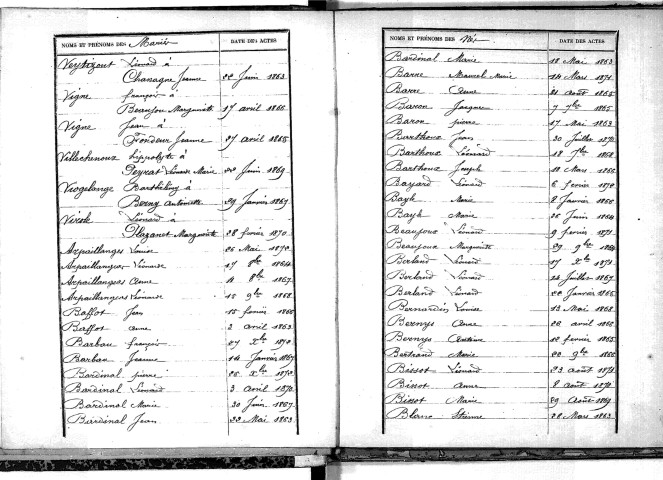 NOMS ET PRÉNOMS DES Mariés DATE DES ACTES
Veytizout Léonard à
Chanagne Jeanne 22 Juin 1863
Vigne françois à
Beaujou Marguerite 17 avril 1866
Vigne Jean à
Fondeur Jeanne 27 avril 1865
Villachenoux hippolyte à
Peyrat Léonarde Marie 22 Juin 1869
Viogelange Barthélémy à
Berny Antoinette 29 Janvier 1867
Virole Léonard à
Plazanet Marguerite 28 février 1870
Arpaillanges Louise 26 Mai 1870
Arpaillanges Léonarde 17 8bre 1864
Arpaillanges Anne 4 8bre 1867
Arpaillanges Léonarde 15 9bre 1868
Baffot Jean 15 février 1866
Baffot Anne 2 avril 1863
Barbau françois 27 Xbre 1870
Barbau Jeanne 14 Janvier 1867
Bardinal pierre 26 Xbre 1870
Bardinal Léonard 3 avril 1870
Bardinal Marie 30 Juin 1867
Bardinal Jean 22 Mai 1863
NOMS ET PRÉNOMS DES Nés DATE DES ACTES
Bardinal Marie 18 Mai 1863
Barre Marcel Marie 14 Mars 1871
Barre Anne 21 août 1865
Baron Jacques 7 7bre 1865
Baron pierre 17 Mai 1863
Barthoux Jean 30 Juillet 1872
Barthoux Léonard 18 7bre 1868
Barthoux Joseph 18 Mars 1866
Bayard Léonard 6 février 1870
Bayle Marie 8 Janvier 1866
Bayle Marie 26 Juin 1864
Beaujoux Léonard 9 février 1871
Beaujoux Marguerite 29 9bre 1864
Berland Léonard 17 Xbre 1871
Berland Léonard 24 Juillet 1867
Berland Léonard 22 Janvier 1866
Bernardin Louise 13 Mai 1868
Bernys Anne 22 avril 1866
Bernys Antoine 12 février 1863
Bertrand Marie 20 9bre 1866
Bissot Léonard 23 août 1871
Bissot Anne 2 août 1870
Bissot Marie 29 août 1869
Blanc Etienne 28 Mars 1863